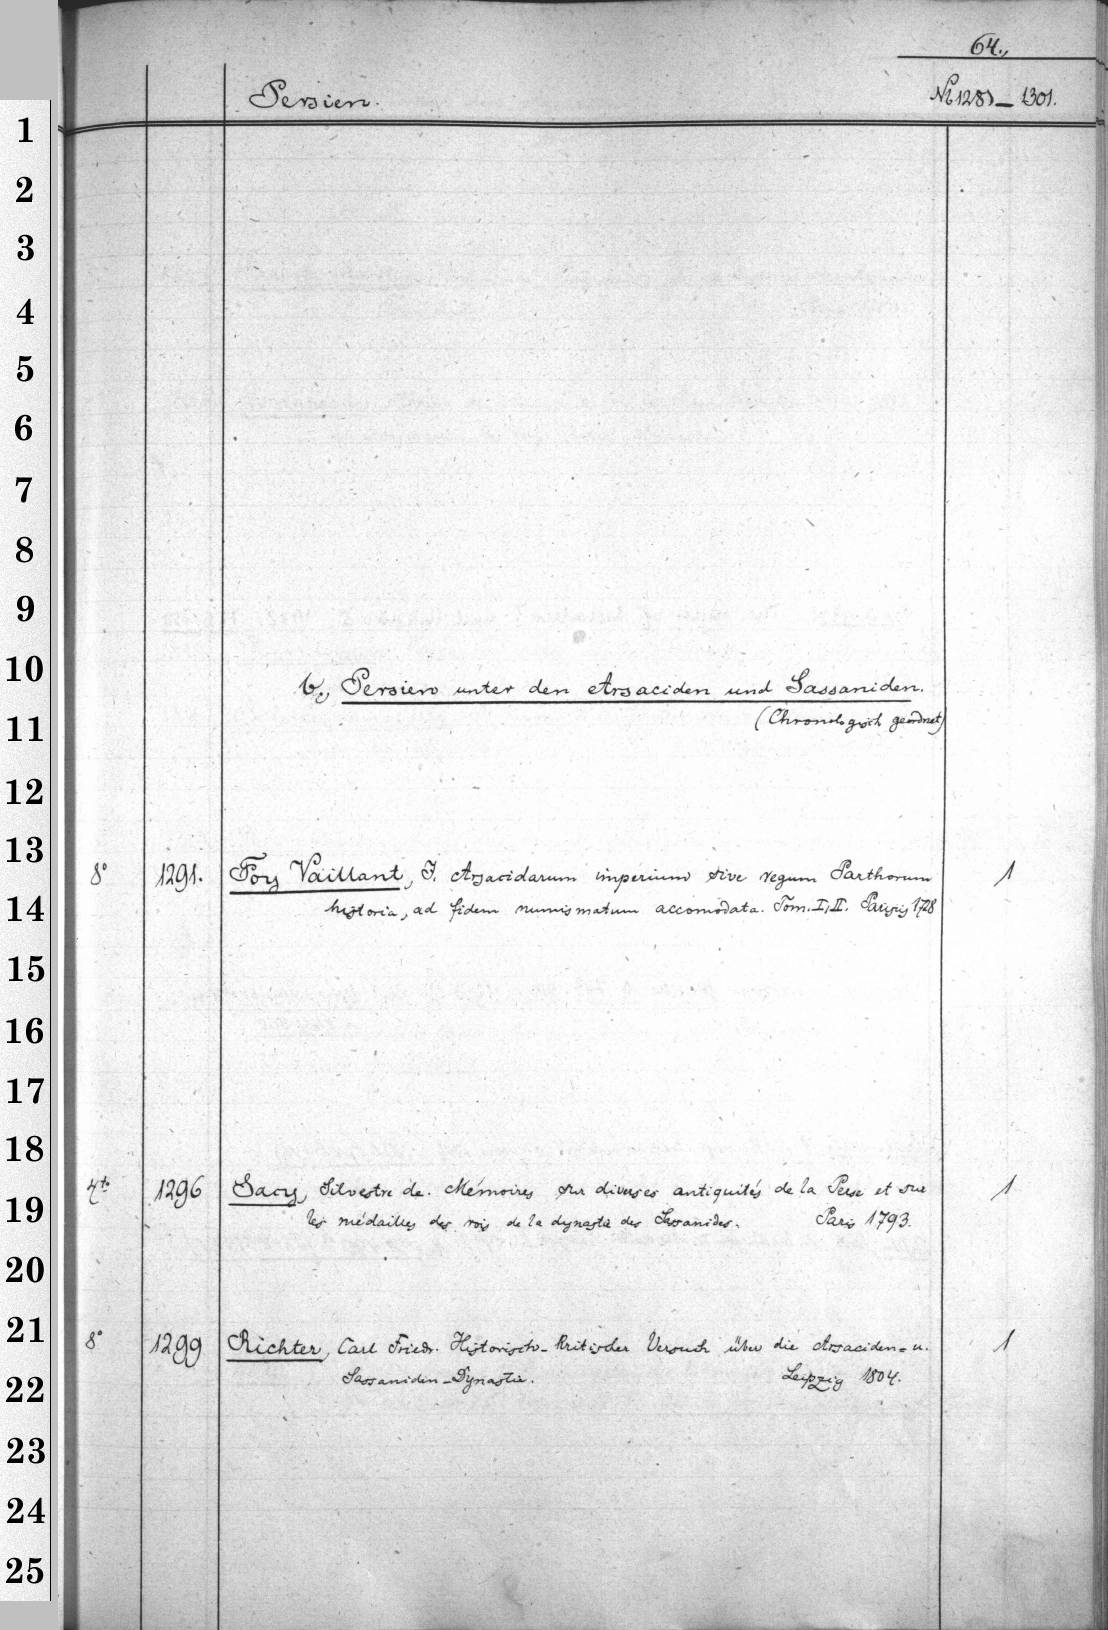 64.,
Persien.
№ 1281 — 1301.
1
2
3
4
5
6
7
8
9
10
b., Persien unter den Arsaciden und Sassaniden.
11
(Chronologisch geordnet)
12
13
8° 1291. Foy Vaillant, J. Arsacidarum imperium sive regum Parthorum 1
14
historia, ad fidem numismatum accomodata. Tom. I, II. Parisiis 1728
15
16
17
18
4to 1296 Sacy, Silvestre de. Mémoires sur diverses antiquités de la Perse et sur 1
19
les médailles des rois de la dynastie des Sassanides. Paris 1793.
20
21
8° 1299 Richter, Carl Friedr. Historisch-Kritischer Versuch über die Arsaciden- u. 1
22
Sassaniden-Dynastie. Leipzig 1804.
23
24
25